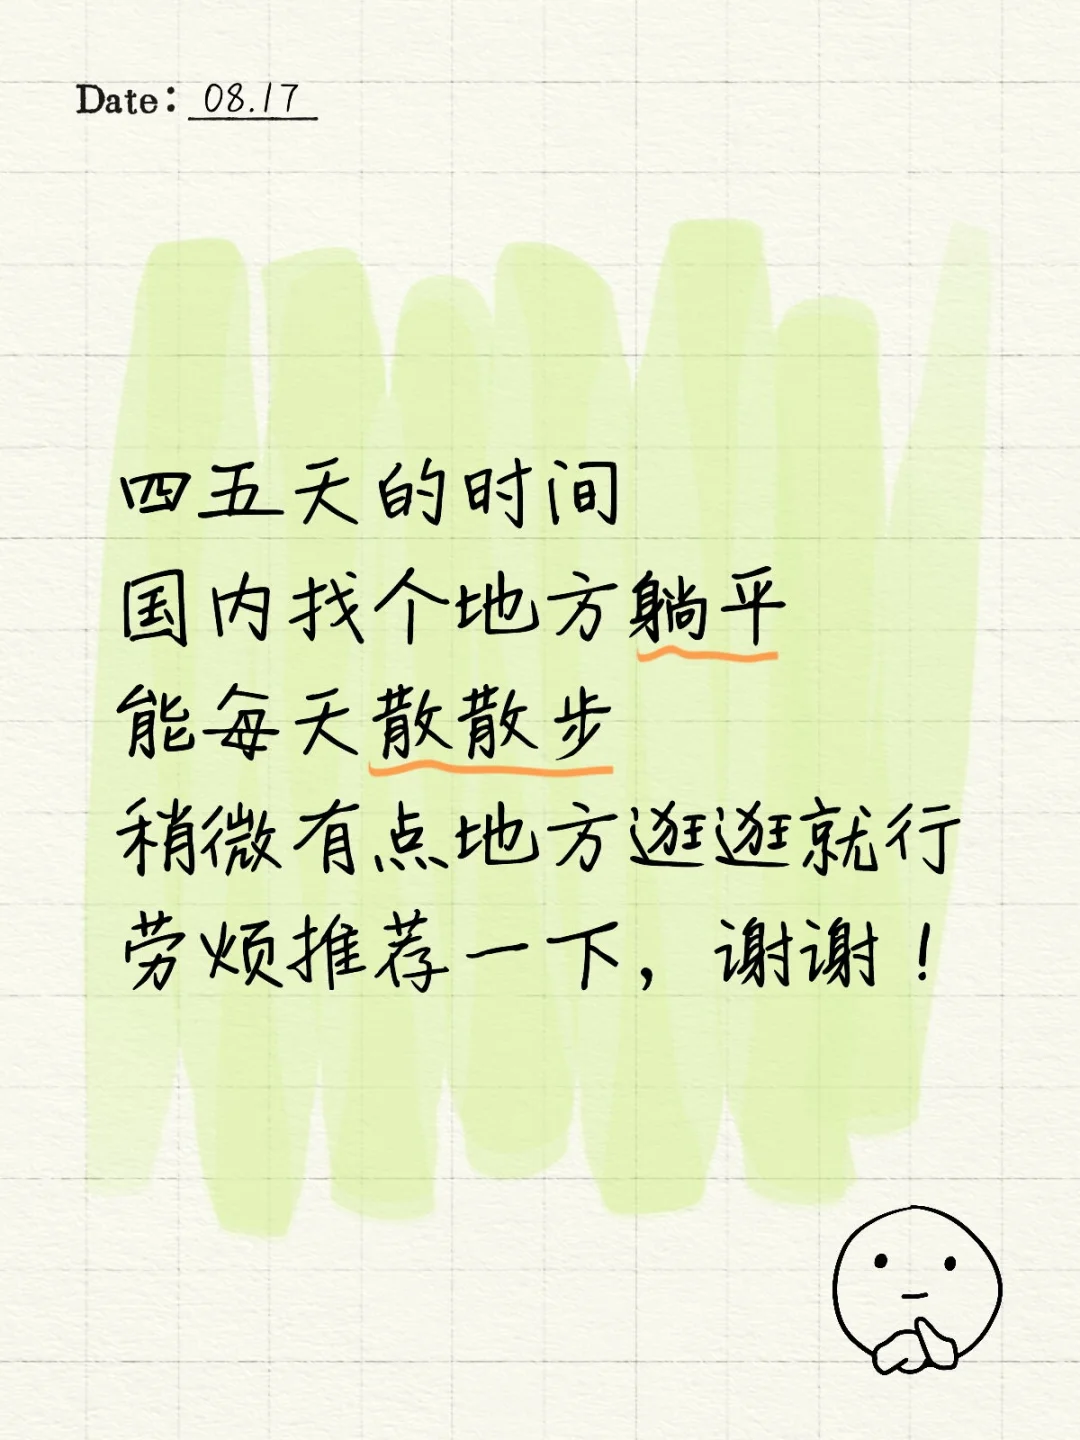 Date: 08.17
四五天的时间
国内找个地方躺平
能每天散散步
稍微有点地方逛逛就行
劳烦推荐一下，谢谢！